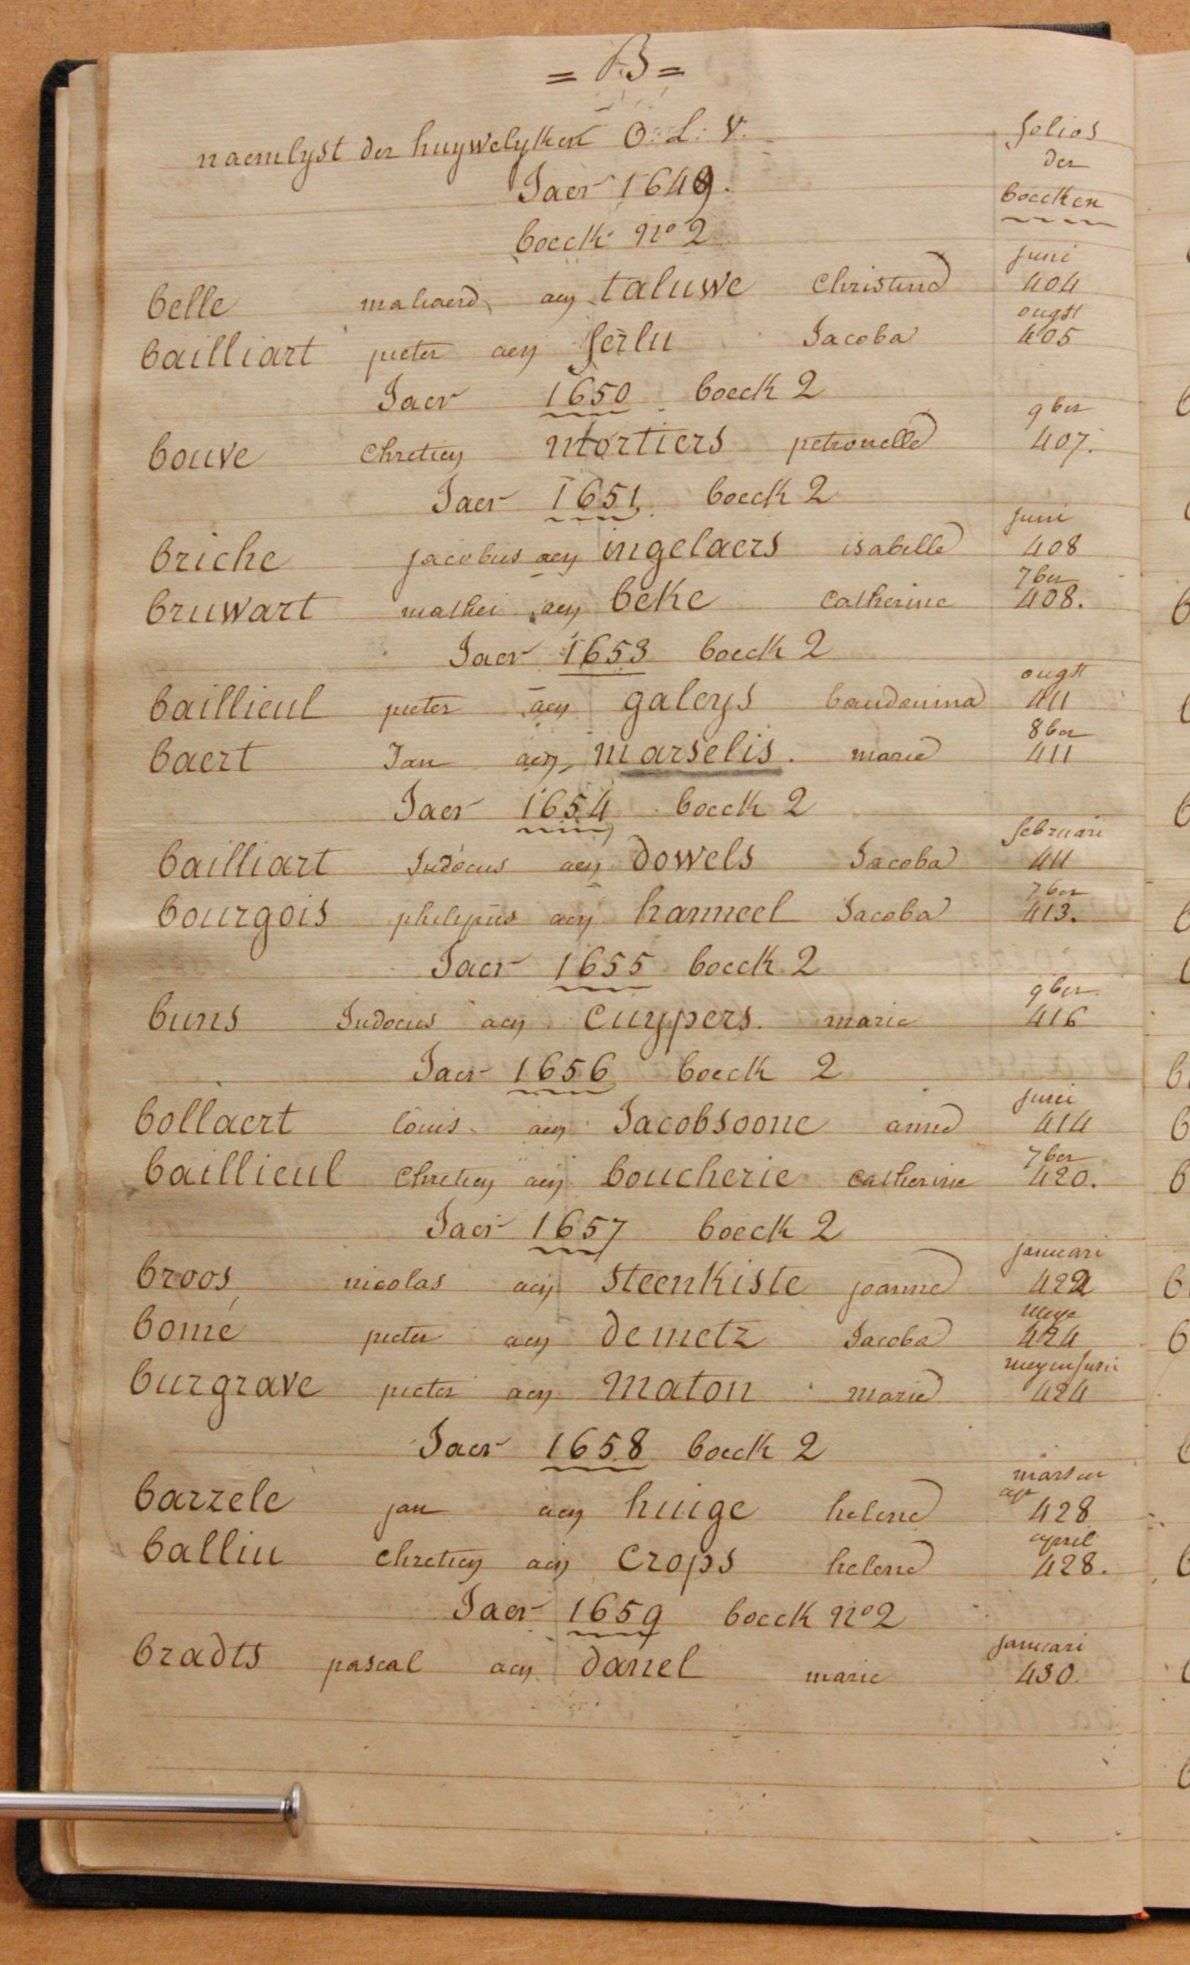 = B =
naemlyst der huywelyken O: L: V. folios
der
Jaer 1649. boecken
boeck no 2
juni
belle aen taluwe Christina 404
ougst
bailliart pieter aen ferlu Jacoba 405
Jaer 1650 boeck 2
9ber
bouve Chretien mortiers petronelle 407.
Jaer 1651 boeck 2
juni
briche jacobus aen ingelaers isabelle 408
7ber
bruwart mathei aen beke Catherine 408.
Jaer 1653 boeck 2
ougst
baillieul pieter aen galeys baudouina 411
8ber
baert Jan aen marselis. marie 411
Jaer 1654 boeck 2
februari
bailliart Judocus aen dowels Jacoba 411
7ber
bourgois philipus aen hanneel Jacoba 413.
Jaer 1655 boeck 2
9ber
buns Judocus aen Cuypers. marie 416
Jaer 1656 boeck 2
junii
bollaert louis aen Jacobsoone anne 414
7ber
baillieul Chretien aen boucherie catherine 420.
Jaer 1657 boeck 2
januari
broos nicolas aen steenkiste joanne 422
meye
bomé pieter aen demetz Jacoba 424
mey en juni
burgrave pieter aen maton marie 424
Jaer 1658 boeck 2
mars en
apr
barzele jan aen huige helene 428
april
balliu Chretien aen Crops helene 428.
Jaer 1659 boeck no 2
januari
bradts pascal aen danel marie 430.